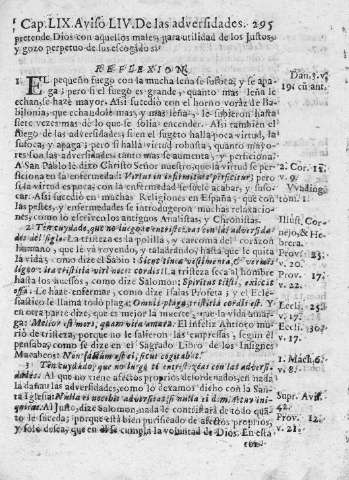 Cap. LIX. Aviso LIV. De las adversidades. 295
pretende Dios con aquellos males, para utilidad de los Justos,
y gozo perpetuo de sus escogidos
REFLEXION
1. EL pequeño fuego con la mucha leña se sofoca, y se apa-
ga; pero si el fuego es grande, quanto mas leña le
echan, se haze mayor. Assi sucedió con el horno voràz de Ba-
bilonia, que echandole mas, y mas leña, se subieron hasta
siete vezes mas de lo que se solia encender. Assi tambien el
fuego de las adversidades, si en el sugeto halla poca virtud, la
sufoca, y apaga; pero si halla virtud robusta, quanto mayo-
res son las adversidades tanto mas se aumenta, y perficiona.
A San Pablo le dixo Christo Señor nuestro, que la virtud se perfi-
ciona en la enfermedad: Virtus in infirmitate perficitur; pero
si la virtud es poca, con la enfermedad se suele acabar, y sufo-
car. Assi sucedió en muchas Religiones en España; que con
las pestes, y enfermedades se introdugeron muchas relaxacio-
nes, como lo escriven los antiguos Analistas, y Chronistas.
2. Ten cuydado, que no luego te entristezcas en las adversida-
des del siglo. La tristeza es la polilla, y carcoma del corazon
humano, que le và royendo, y taladrando, hasta que le quita
la vida; como dize el Sabio: Sicut tinea vestimento, & vermis
ligno: ita tristitia viri nocet cordi: La tristeza seca al hombre
hasta los huessos, como dize Salomon: Spiritus tristis, exsiccat
ossa. Le haze enfermar, como dize Isaías Profeta; y el Ecle-
siastico le llama todo plaga: Omnis plaga, tristitia cordis est. Y
en otra parte dize, que es mejor la muerte, que la vida amar-
ga: Melior est mors, quam vita amara. El infeliz Antioco mu-
riò de tristeza, porque no le salieron las empressas, segun èl
pensaba, como se dize en el Sagrado Libro de los Insignes
Macabeos: Non factum est ei, sicut cogitabat.
3. Ten cuydado, que no luego te entristezcas con las adversi-
dades. Al que no tiene afectos proprios desordenados, en nada
la dañan las adversidades, como lo dexamos dicho con la San-
ta Iglesia: Nulla ei nocebit adversitas, si nulla ei dominetur ini-
quitas. Al Justo, dize Salomon, nada le contristarà de todo quan-
to le suceda; porque està bien purificado de afectos proprios,
y solo desea, que en èl se cumpla la voluntad de Dios. En esta
Dan. 3. v.
19. cũ ant.
2. Cor. 12.
v. 9.
VVading.
tom. 1.
Illust. Cor-
nejo, & He-
brera.
Prov. 25.
v. 20.
Prov. 17.
v. 22.
Eccli. 25.
v. 17.
Eccli. 30.
v. 17.
1. Mach. 6.
v. 8.
Supr. Avis.
42.
Prov. 12.
v. 21.